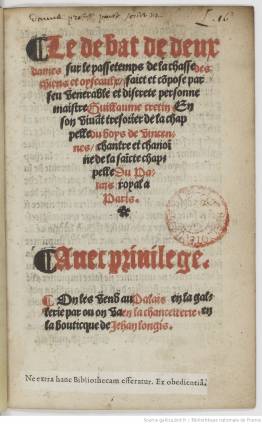 I. 16
¶Le debat de deux
dames sur le passetemps de la chasse des
chiens et oyseaulx/ faict et cõpose par
feu venerable et discrete personne
maistre Guillaume cretin En
son vivãt tresorier de la chap
pelle du boys de vincen
nes/ chantre et chanoi
ne de la saicte chap
pelle Du Pa
lais royal a
Paris.
¶Avec privilege.
¶ On les vend au Palais en la gal-
lerie par ou on va en la chancellerie/ en
la bouticque de Jehan longis.
Ne extra hanc Bibliothecam efferatur. Ex obedientiâ.
Source gallica.bnf.fr / Bibliothèque nationale de France